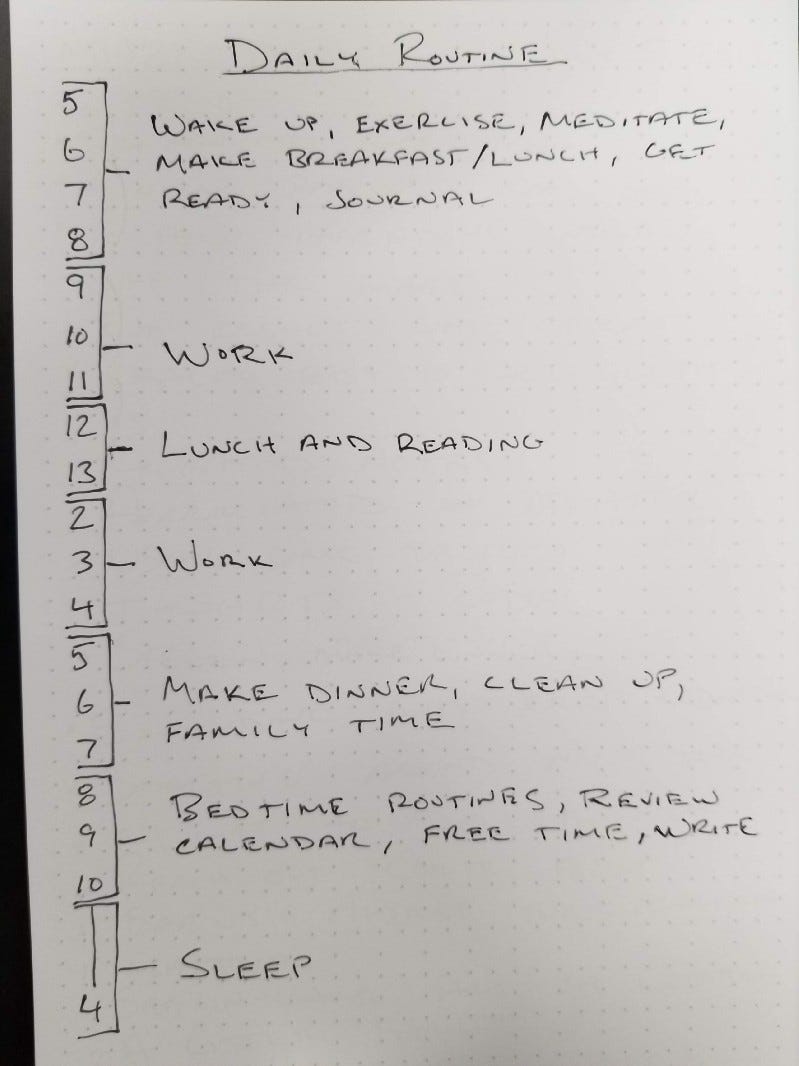 DAILY ROUTINE
5
WAKE UP, EXERCISE, MEDITATE,
6
MAKE BREAKFAST/LUNCH, GET
7
READY, JOURNAL
8
9
10
WORK
11
12
LUNCH AND READING
13
2
3
WORK
4
5
6
MAKE DINNER, CLEAN UP,
FAMILY TIME
7
8
BEDTIME ROUTINES, REVIEW
9
CALENDAR, FREE TIME, WRITE
10
SLEEP
4